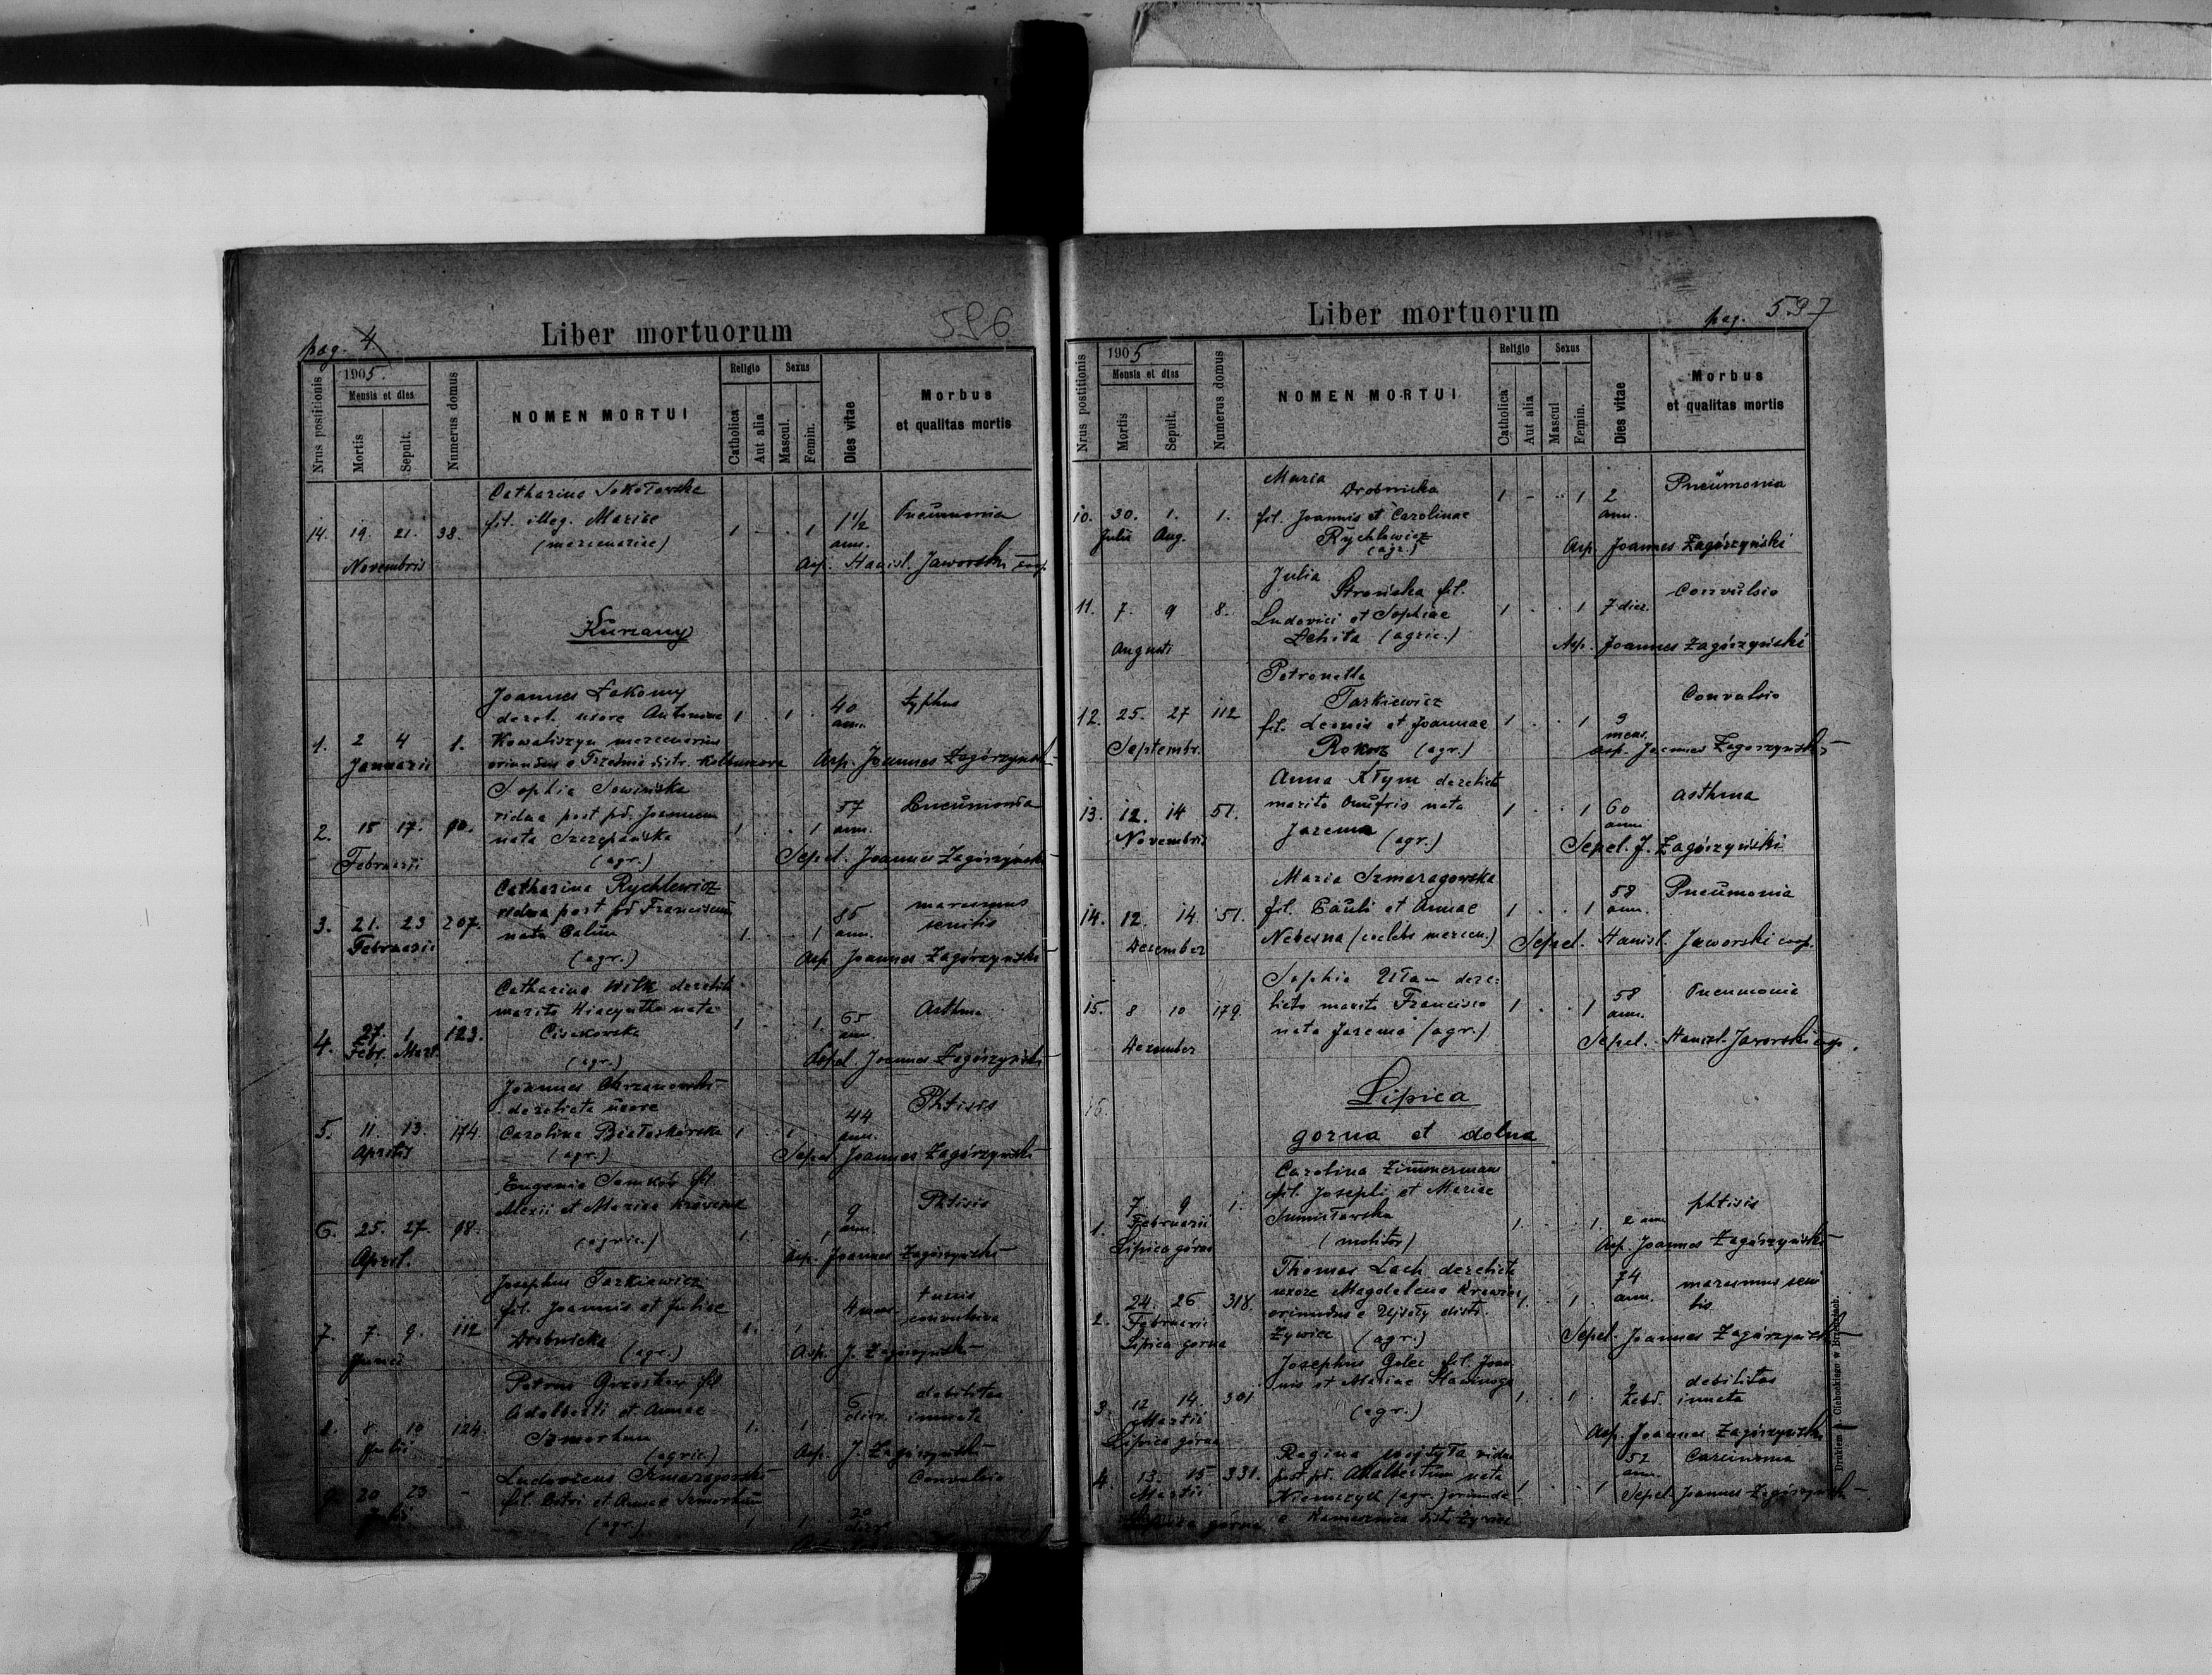 pag. 4
Liber mortuorum
596
Nrus postitionis
1905.
Mensis et dies
Mortis
Sepult.
Numerus domus
NOMEN MORTUI
Religio
Catholica
Aut alia
Sexus
Mascul.
Femin.
Dies vitae
Morbus
et qualitas mortis
14. 19. 21. 38.
Novembris
Catharina Sokołowska
fil. illeg. Mariae
(mercenariae)
1 . . 1 1½ ann.
Pneumonia
Asp. Stanisl. Jaworski coop.
Kurzany
1. 2 4 1.
Januarii
Joannes Łakomy
derel. uxore Antonina
Kowaliszyn mercenarius
oriundus e Trześnie distr. Kolbuszowa
1 . 1 . 40 ann.
typhus
Asp. Joannes Zagórzyński
2. 15 17. 90.
Februarii
Sophia Sowińska
vidua post pd. Joannem
nata Szczepańska
(agr.)
1 . . 1 57 ann.
Pneumonia
Sepel. Joannes Zagórzyński
3. 21. 23 207.
Februarii
Catharina Rychlewicz
vidua post pd Franciscum
nata Balun
(agr.)
1. . . 1 85 ann.
marasmus
senilis
Asp. Joannes Zagórzyński
4. 27. 1. 123.
Febr. Mart.
Catharina Wilk derelicto
marito Hiacyntho nata
(agr.)
1 . . 1. 65 ann.
Asthma
Sepel. Joannes Zagórzyński
5. 11. 13. 174
Aprilis
Joannes Chrzanowski
derelicta uxore
Carolina Białoskórska
(agr.)
1 . 1 . 44 ann.
Phtisis
Sepel. Joannes Zagórzyński
6. 25. 27. 98.
April.
Eugenia Samków fil.
Alexii et Mariae
(agric.)
1. . . 1 9 ann.
Phtisis
Asp. Joannes Zagórzyński
7. 7. 9. 112
Junii
Josephus Tarkiewicz
fil. Joannis et Juliae
Drobnicka
(agr.)
1. . 1 . 4 mens.
tussis
convulsiva
Asp. J. Zagórzyński
8. 8 10 124.
Julii
Petrus Grzeskow fil.
Adalberti et Annae
Szmorhun
(agric.)
1. . 1 6 dier.
debilitas
innata
Asp. J. Zagórzyński
9. 20 23 -
Julii
Ludovicus Szmaragowski
fil. Petri et Annae Szmorhun
(agr.)
1 . 1 . 20 dier.
Convulsio
Liber mortuorum
pag. 597
Nrus postitionis
1905
Mensis et dies
Mortis
Sepult.
Numerus domus
NOMEN MORTUI
Religio
Catholica
Aut alia
Sexus
Mascul
Femin.
Dies vitae
Morbus
et qualitas mortis
10. 30. 1. 1.
Julii Aug.
Maria
Drobnicka
fil. Joannis et Carolinae
Rychlewicz
(agr.)
1 - .. 1 2 ann.
Pneumonia
Asp. Joannes Zagórzyński
11. 7. 9 8.
Augusti
Julia
Strońska fil.
Ludovici et Sophiae
Lehita (agric.)
1 . . 1 7 dier.
Convulsio
Asp. Joannes Zagórzyński
12. 25. 27 112
Septembr.
Petronella
Tarkiewicz
fil. Leonis et Joannae
Rokosz (agr.)
1 . . 1 9 mens.
Convulsio
Asp. Joannes Zagorzyński
13. 12. 14 51.
Novembris
Anna Kłym derelicto
marito Onufrio nata
Jarema (agr.)
1 . 1 60 ann.
Asthma
Sepel. J. Zagórzyński
14. 12. 14. 51.
Dezember
Maria Szmaragowska
fil. Pauli et Annae
Nebesna (caelebs mercen.)
1 . . 1 58 ann.
Pneumonia
Sepel. Stanisl. Jaworski coop.
15. 8 10 179.
Dezember
Sophia Ułan dere-
licto marito Francisco
nata Jarema (agr.)
1 . . 1 58 ann.
Pneumonia
Sepel. Stanisl. Jaworski coop.
16.
Lipica
gorna et dolna
1. 7 9 1.
Februarii
Lipica górna
Carolina Zimmerman
fil. Josephi et Mariae
(molitor)
1. . . 1. 2 ann.
phtisis
Asp. Joannes Zagórzyński
2. 24. 26. 318.
Februarii
Lipica gorna
Thomas Lach derelicta
uxore Magdalena Krawiec
oriundus e Ujsoły distr.
Żywiec (agr.)
1. . 1 . 74 ann.
marasmus seni
lis
Sepel. Joannes Zagórzyński
3. 12 14. 301
Martii
Lipica górna
Josephus Golec fil. Joan
nis et Mariae
(agr.)
1. . 1 . 2 hebd.
debilitas
innata
Asp. Joannes Zagórzyński
4. 13. 15. 331.
Martii
Lipica górna
Regina Wojtyła vidua
post pd. Adalbertum nata
Niemczyk (agr.) oriunda
e Kamesznica distr. Żywiec
1 . . 1 52 ann.
Carcinoma
Sepel. Joannes Zagórzyński
Drukiem A. Cichockiego w Brzeżanach.